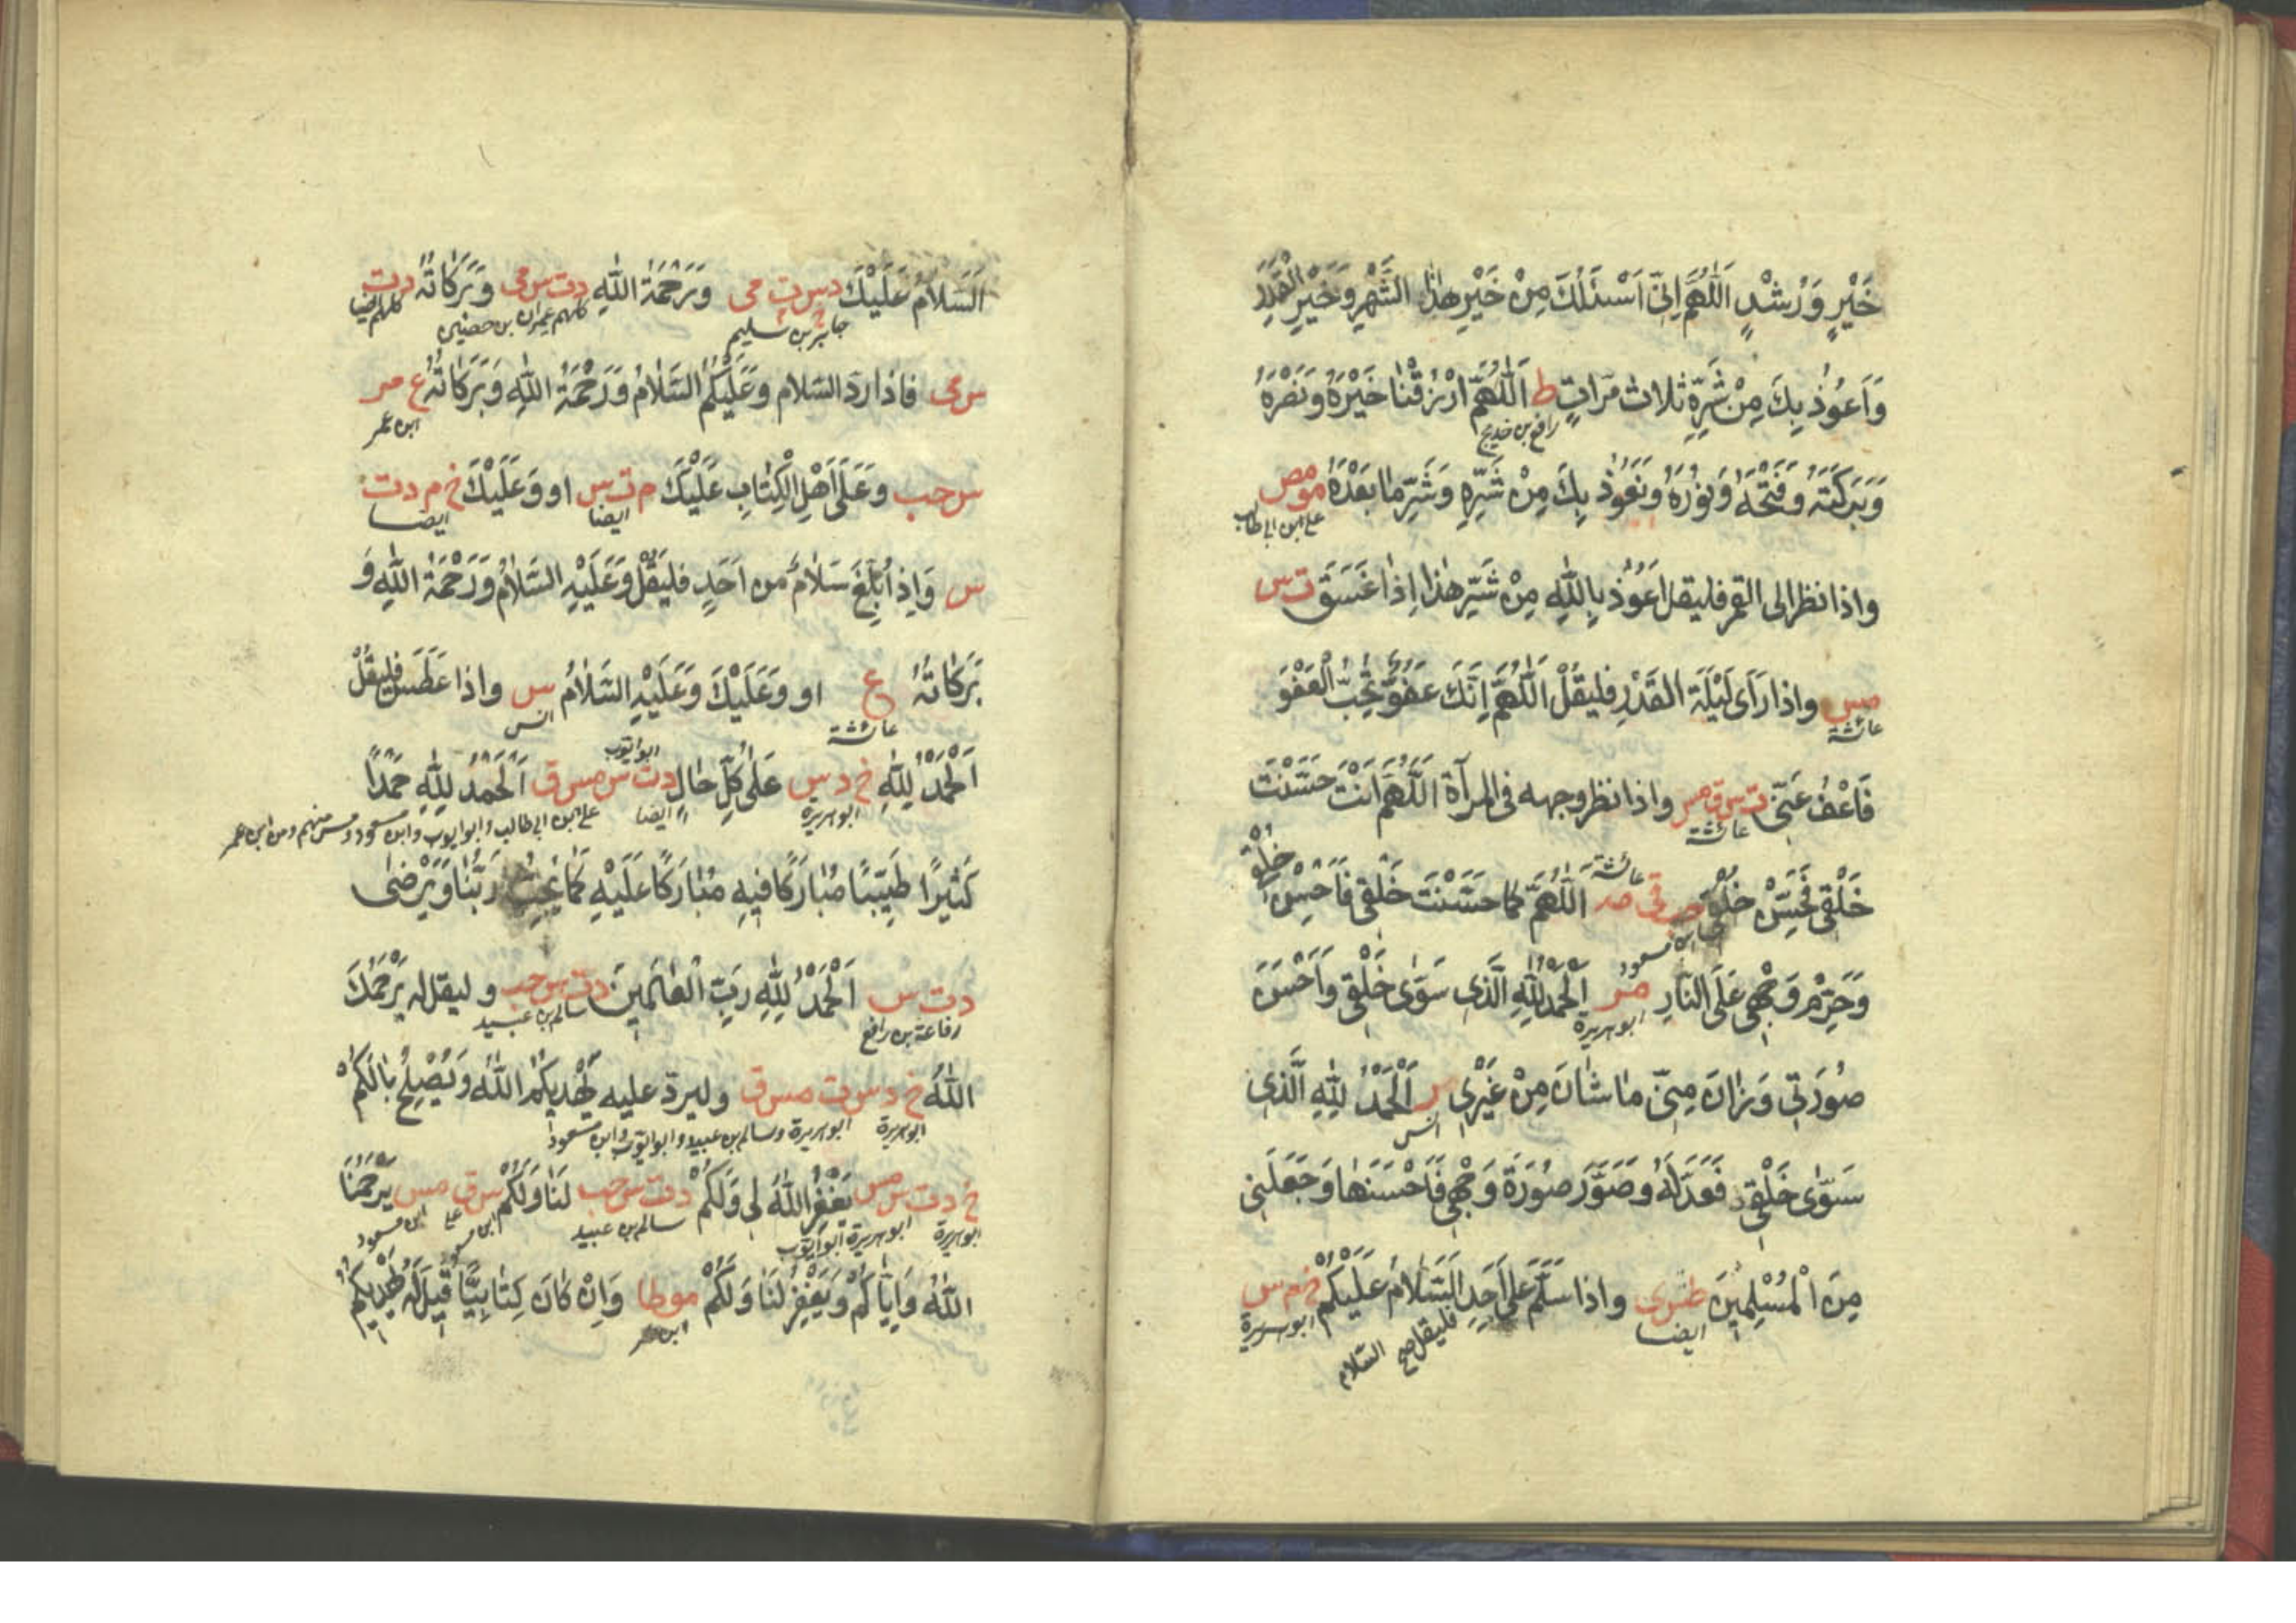 خَيْرٍ وَرُشْدٍ اَللّٰهُمَّ اِنِّى اَسْئَلُكَ مِنْ خَيْرِ هٰذَا الشَّهْرِ وَخَيْرِ الْقَدَرِ
وَاَعُوْذُ بِكَ مِنْ شَرِّهٖ ثلاث مَرّاتٍ ط اَللّٰهُمَّ ارْزُقْنَا خَيْرَهُ وَنَصْرَهُ
رافع بن خديج
وَبَرَكَتَهُ وَفَتْحَهُ وَنُوْرَهُ وَنَعُوْذُ بِكَ مِنْ شَرِّهٖ وَشَرِّ مَا بَعْدَهُ مومص
على ابن ابى طالب
واذا نظر الى القمر فليقل اَعُوْذُ بِاللّٰهِ مِنْ شَرِّ هٰذَا اِذَا غَسَقَ ت س
مس واذا رَاَى لَيْلَةَ القَدْرِ فليقُلْ اَللّٰهُمَّ اِنَّكَ عَفُوٌّ تُحِبُّ الْعَفْوَ
عائشة
فَاعْفُ عَنِّى ت س ق مس واذا نظر وجهه فى المرآة اَللّٰهُمَّ اَنْتَ حَسَّنْتَ
عائشة
خَلْقِى فَحَسِّنْ خُلُقِى حب مى اَللّٰهُمَّ كما حَسَّنْتَ خَلْقِى فَاَحْسِنْ خُلُقِى
عائشة
ابن مسعود
وَحَرِّمْ وَجْهِى عَلَى النَّارِ مر اَلْحَمْدُ لِلّٰهِ الَّذِى سَوّٰى خَلْقِى وَاَحْسَنَ
ابوهريرة
صُوْرَتِى وَزَانَ مِنِّى مَا شَانَ مِنْ غَيْرِى ر اَلْحَمْدُ لِلّٰهِ الَّذِى
انس
سَوّٰى خَلْقِى فَعَدَّلَهُ وَصَوَّرَ صُوْرَةَ وَجْهِى فَاَحْسَنَهَا وَجَعَلَنِى
مِنَ الْمُسْلِمِيْنَ طس ى واذا سَلَّمَ عَلَى اَحَدٍ اَلسَّلَامُ عَلَيْكُمْ خ م س
ايضا
فليقل صح السلام
ابوهريرة
اَلسَّلَامُ عَلَيْكَ د س ت مى وَرَحْمَةُ اللّٰهِ د ت س مى وَبَرَكَاتُهُ د ت
جابر بن سليم
كلهم عمران بن حصين
كلهم ايضا
س مى فاذا ردّ السّلام وَعَلَيْكُمُ السَّلَامُ وَرَحْمَةُ اللّٰهِ وَبَرَكَاتُهُ ع مر
ابن عمر
س حب وَعَلٰى اَهْلِ الْكِتَابِ عَلَيْكَ م ت س او وَعَلَيْكَ خ م د ت
ايضا
ايضا
س وَاِذَا اُبْلِغَ سَلَامٌ من اَحَدٍ فليَقُلْ وَعَلَيْهِ السَّلَامُ وَرَحْمَةُ اللّٰهِ وَ
بَرَكَاتُهُ ع او وَعَلَيْكَ وَعَلَيْهِ السَّلَامُ س واذا عَطَسَ فليقُلْ
عائشة
انس
اَلْحَمْدُ لِلّٰهِ خ د س عَلٰى كُلِّ حَالٍ د ت س مس ق اَلْحَمْدُ لِلّٰهِ حَمْدًا
ابو ايوب
ابوهريرة
ايضا
على ابن ابى طالب وابو ايوب وابن مسعود
كَثِيْرًا طَيِّبًا مُبَارَكًا فِيْهِ مُبَارَكًا عَلَيْهِ كَمَا يُحِبُّ رَبُّنَا وَيَرْضٰى
د ت س اَلْحَمْدُ لِلّٰهِ رَبِّ الْعَالَمِيْنَ د ت س حب و ليقل له يَرْحَمُكَ
رفاعة بن رافع
سالم بن عبيد
اللّٰهُ خ د س ت مس ق وليردّ عليه يَهْدِيْكُمُ اللّٰهُ وَيُصْلِحُ بَالَكُمْ
ابوهريرة
ابوهريرة وسالم بن عبيد وابو ايوب وابن مسعود
خ د ت س مس يَغْفِرُ اللّٰهُ لِى وَلَكُمْ د ت س حب لَنَا وَلَكُمْ س ق مس يَرْحَمُنَا
ابوهريرة
ابوهريرة ابو ايوب
سالم بن عبيد
ابن مسعود
على
ابن مسعود
اللّٰهُ وَاِيَّاكُمْ وَيَغْفِرُ لَنَا وَلَكُمْ موطا وَاِنْ كَانَ كِتَابِيًّا قِيْلَ لَهُ يَهْدِيْكُمُ
ابن عمر